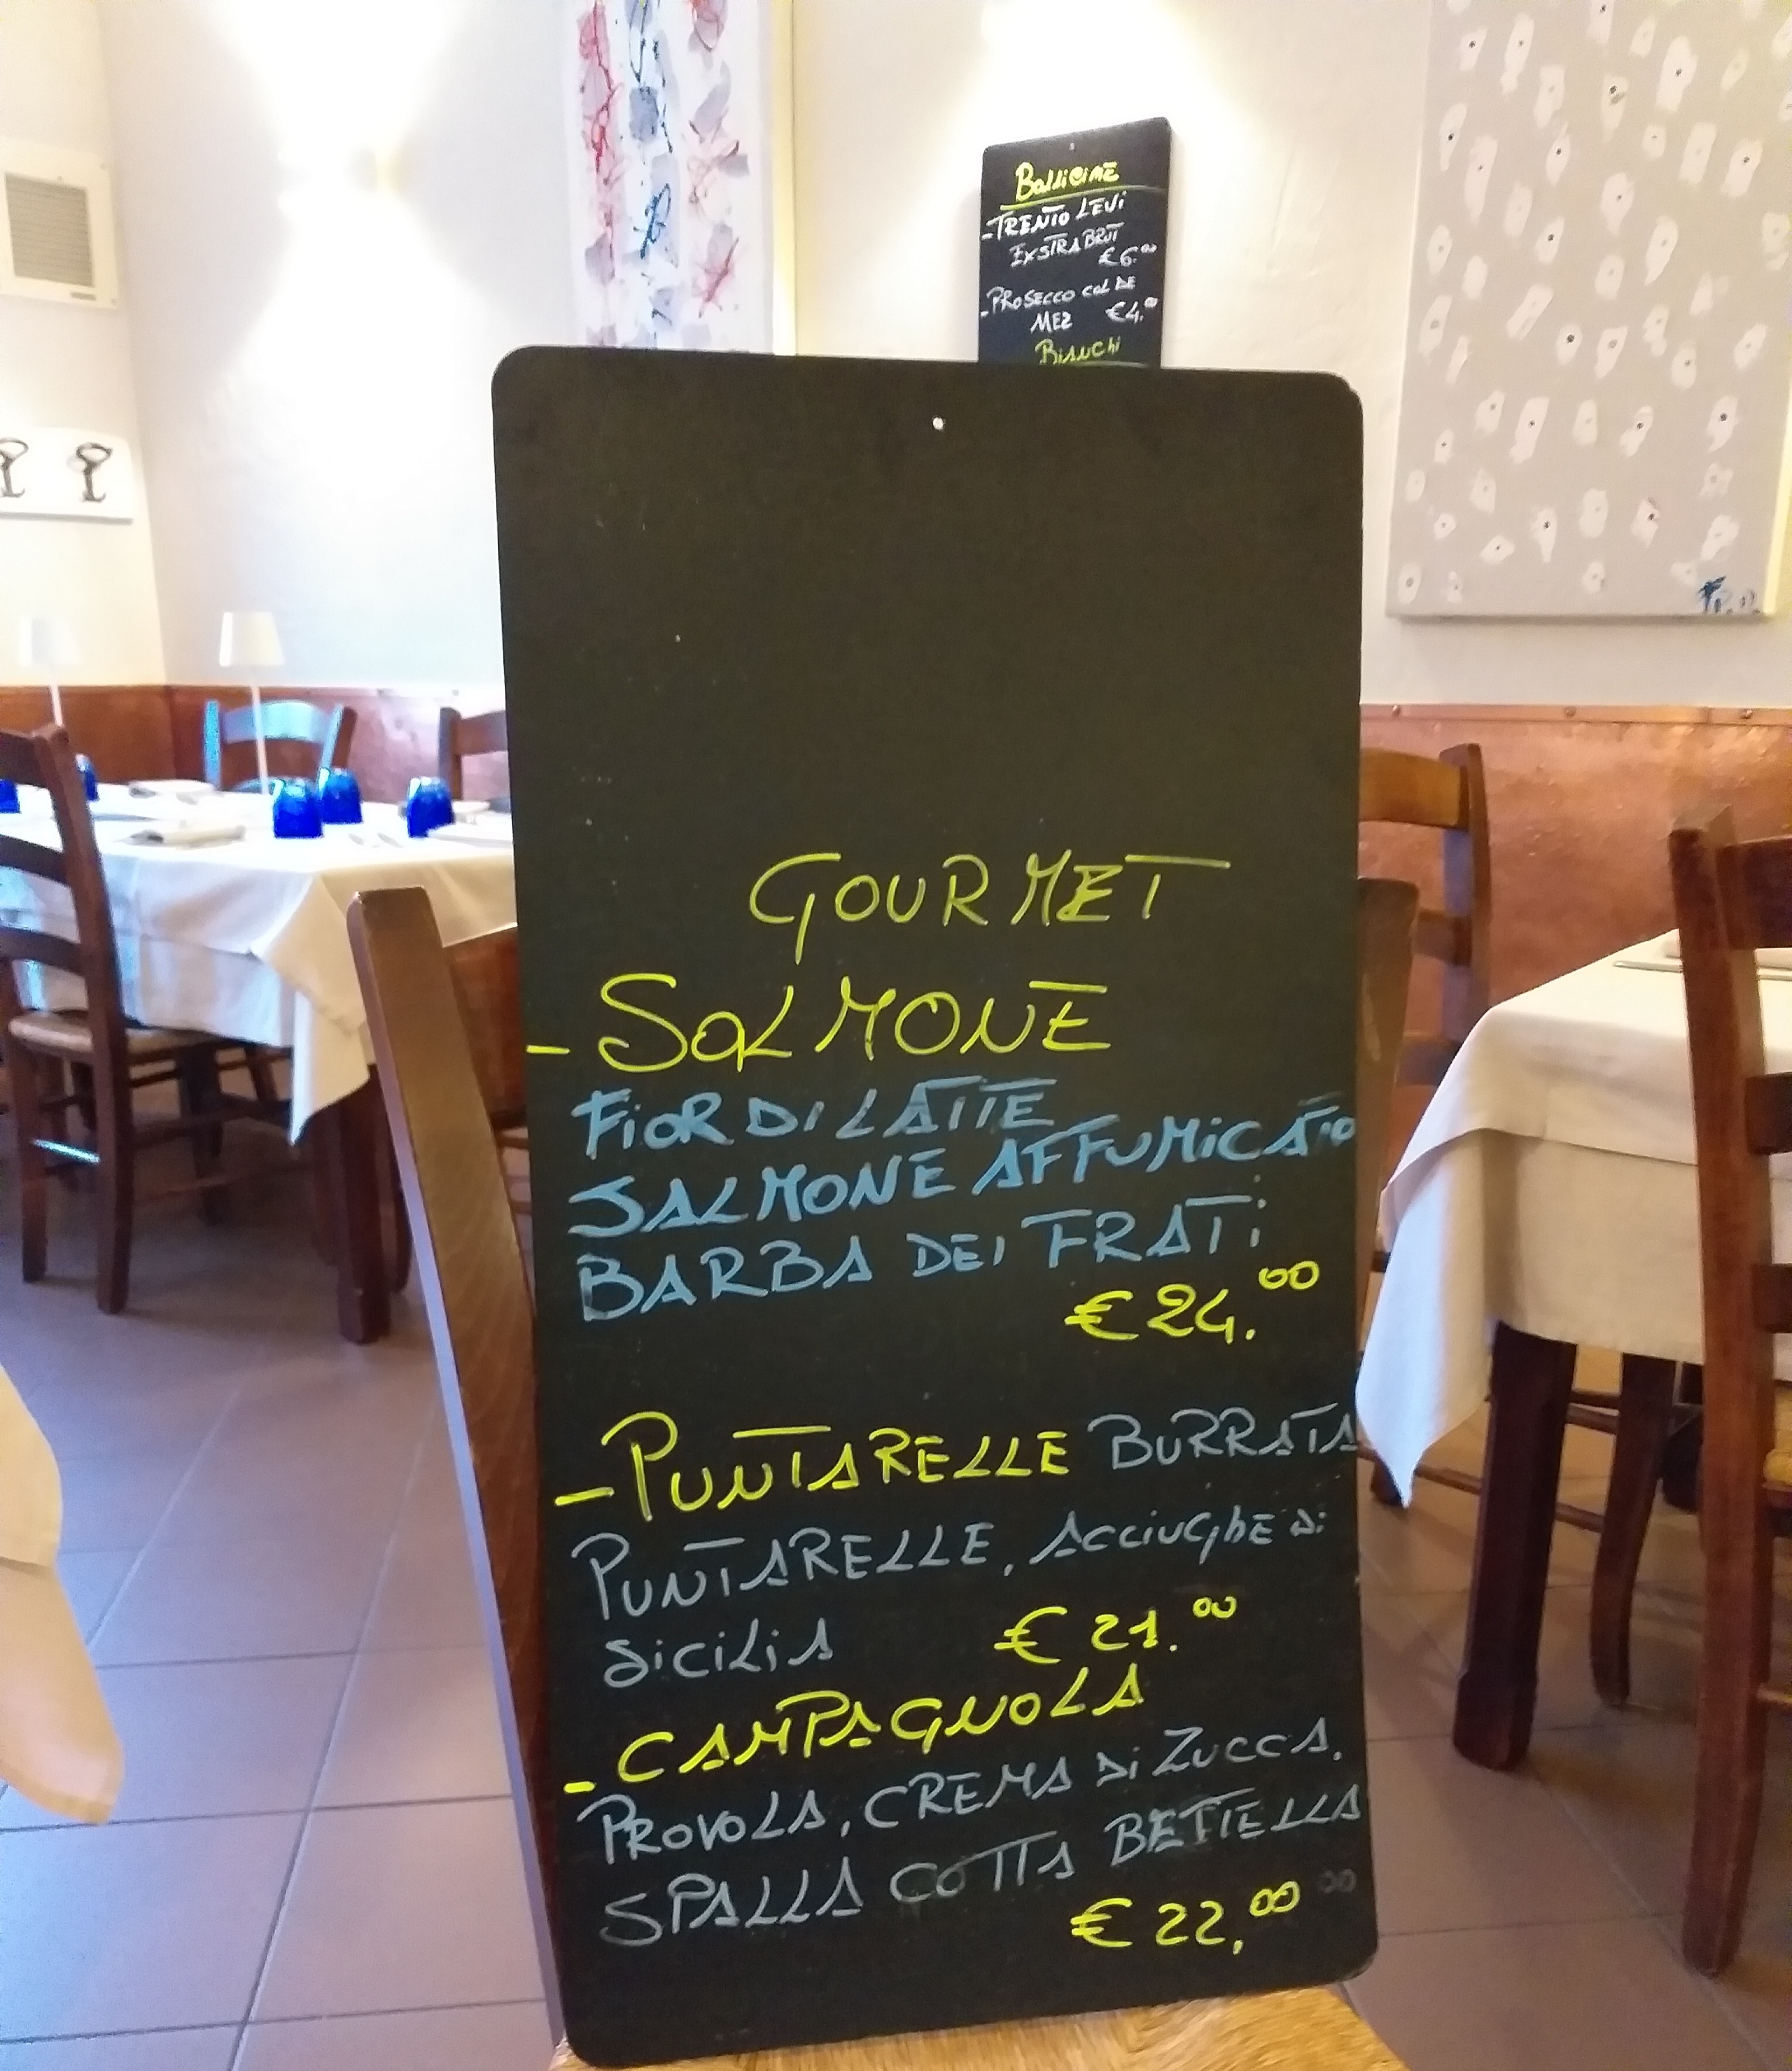 Bollicine
-TRENTO LEVI
EXSTRA BRUT
€ 6.00
-PROSECCO COL DE
MEZ €4.00
BIANCHI
GOURMET
-SALMONE
FIOR DI LATTE
SALMONE AFFUMICATO
BARBA DEI FRATI
€ 24.00
-PUNTARELLE BURRATA
PUNTARELLE, ACCIUGHE DI
SICILIA € 21.00
-CAMPAGNOLA
PROVOLA, CREMA DI ZUCCA,
SPALLA COTTA BETTELLA
€ 22,00